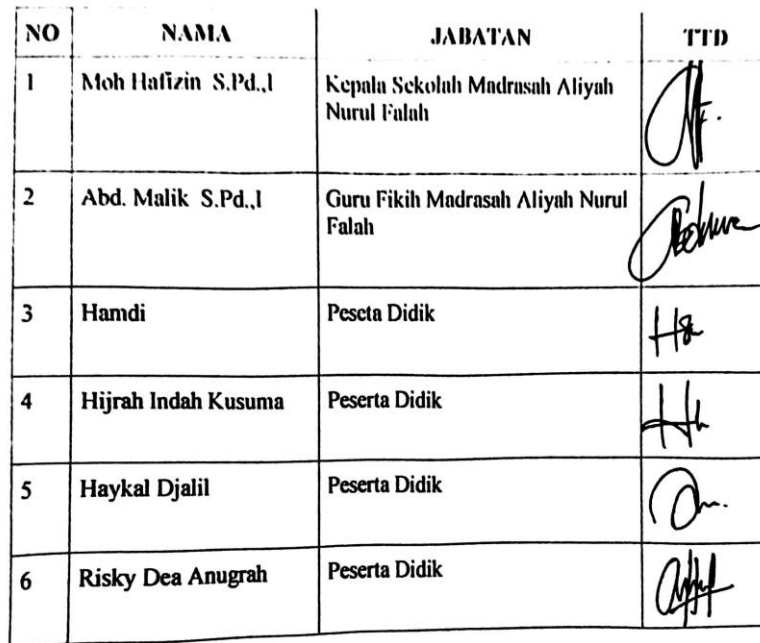 NO NAMA JABATAN TTD
1 Moh Hafizin S.Pd.,I Kepala Sekolah Madrasah Aliyah
Nurul Falah
2 Abd. Malik S.Pd.,I Guru Fikih Madrasah Aliyah Nurul
Falah
3 Hamdi Peseta Didik
4 Hijrah Indah Kusuma Peserta Didik
5 Haykal Djalil Peserta Didik
6 Risky Dea Anugrah Peserta Didik